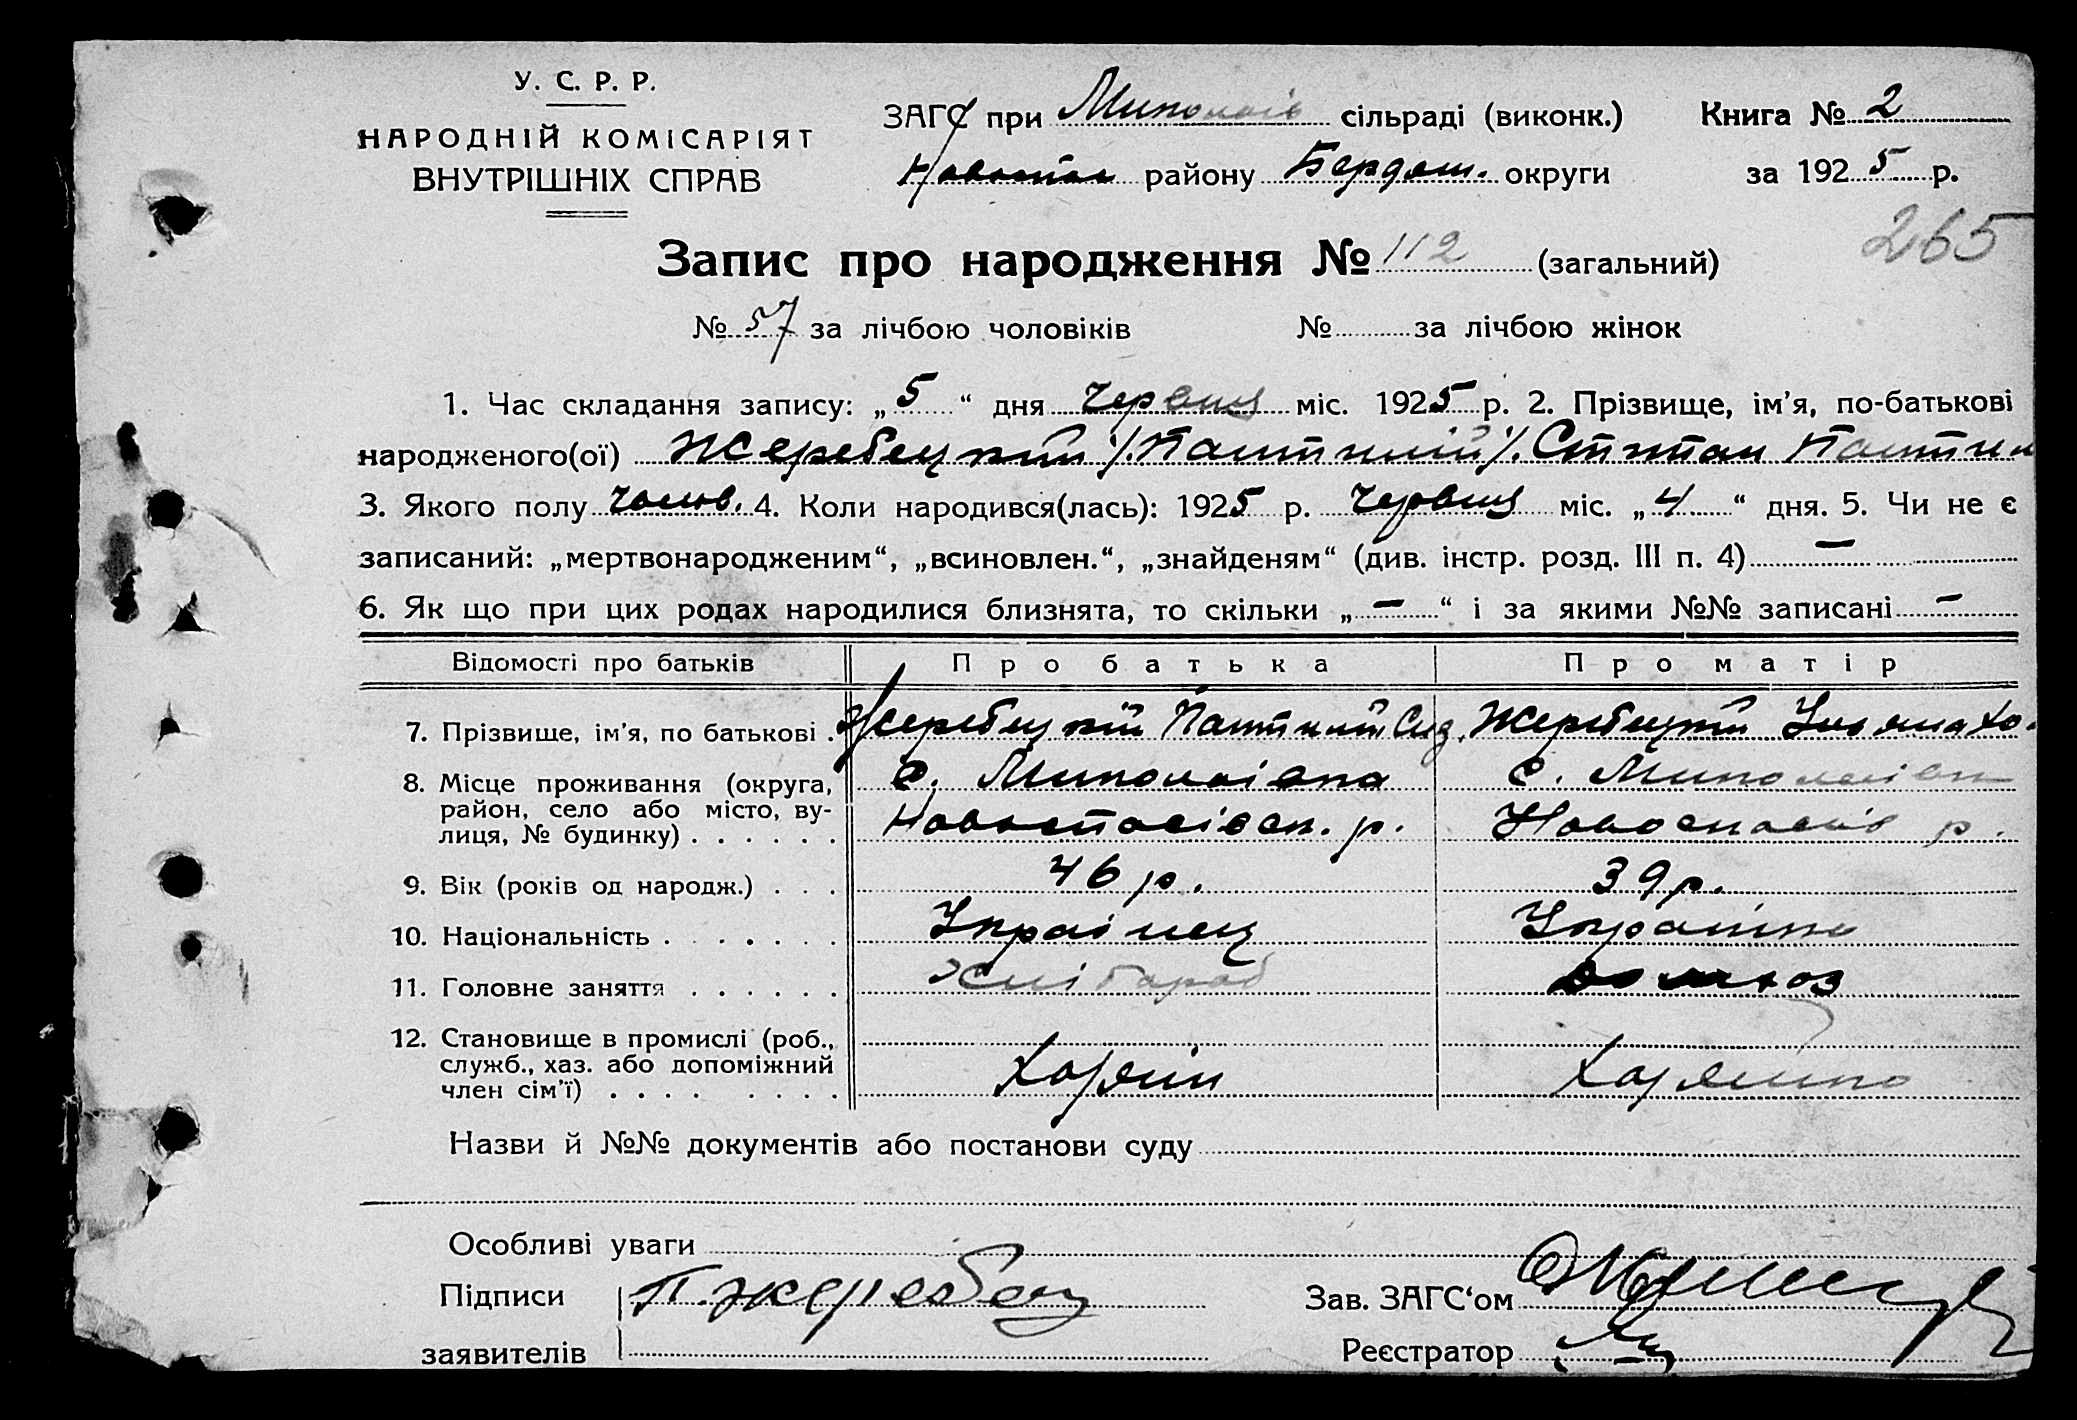 У. С. Р. Р.
НАРОДНІЙ КОМІСАРІЯТ
ВНУТРІШНІХ СПРАВ
ЗАГС при Миколаїв сільраді (виконк.) Книга № 2
Новоспас району Бердян. округи за 1925 р.
265
Запис про народження № 112 (загальний)
№ 57 за лічбою чоловіків № за лічбою жінок
1. Час складання запису: „5“ дня Червця міс. 1925 р. 2. Прізвище, ім'я, по-батькові
народженого(ої) Жеребецкий
3. Якого полу чолов. 4. Коли народився(лась): 1925 р. Червця міс. „4“ дня. 5. Чи не є
записаний: „мертвонародженим“, „всиновлен.“, „знайденям“ (див. інстр. розд. III п. 4) —
6. Як що при цих родах народилися близнята, то скільки „—“ і за якими №№ записані —
Відомості про батьків Про батька Про матір
7. Прізвище, ім'я, по батькові Жеребецкий
8. Місце проживання (округа, с. Миколаівка с. Миколаівк
район, село або місто, ву-
лиця, № будинку) Новоспасівск. р. Новоспасів р.
9. Вік (років од народж.) 46 р. 39 р.
10. Національність Украінец Украінка
11. Головне заняття Хлібароб домхоз
12. Становище в промислі (роб.,
служб., хаз. або допоміжний
член сім'ї) Хазяїн Хазяйка
Назви й №№ документів або постанови суду
Особливі уваги
Підписи П. Жеребец Зав. ЗАГС‘ом
заявителів Реєстратор